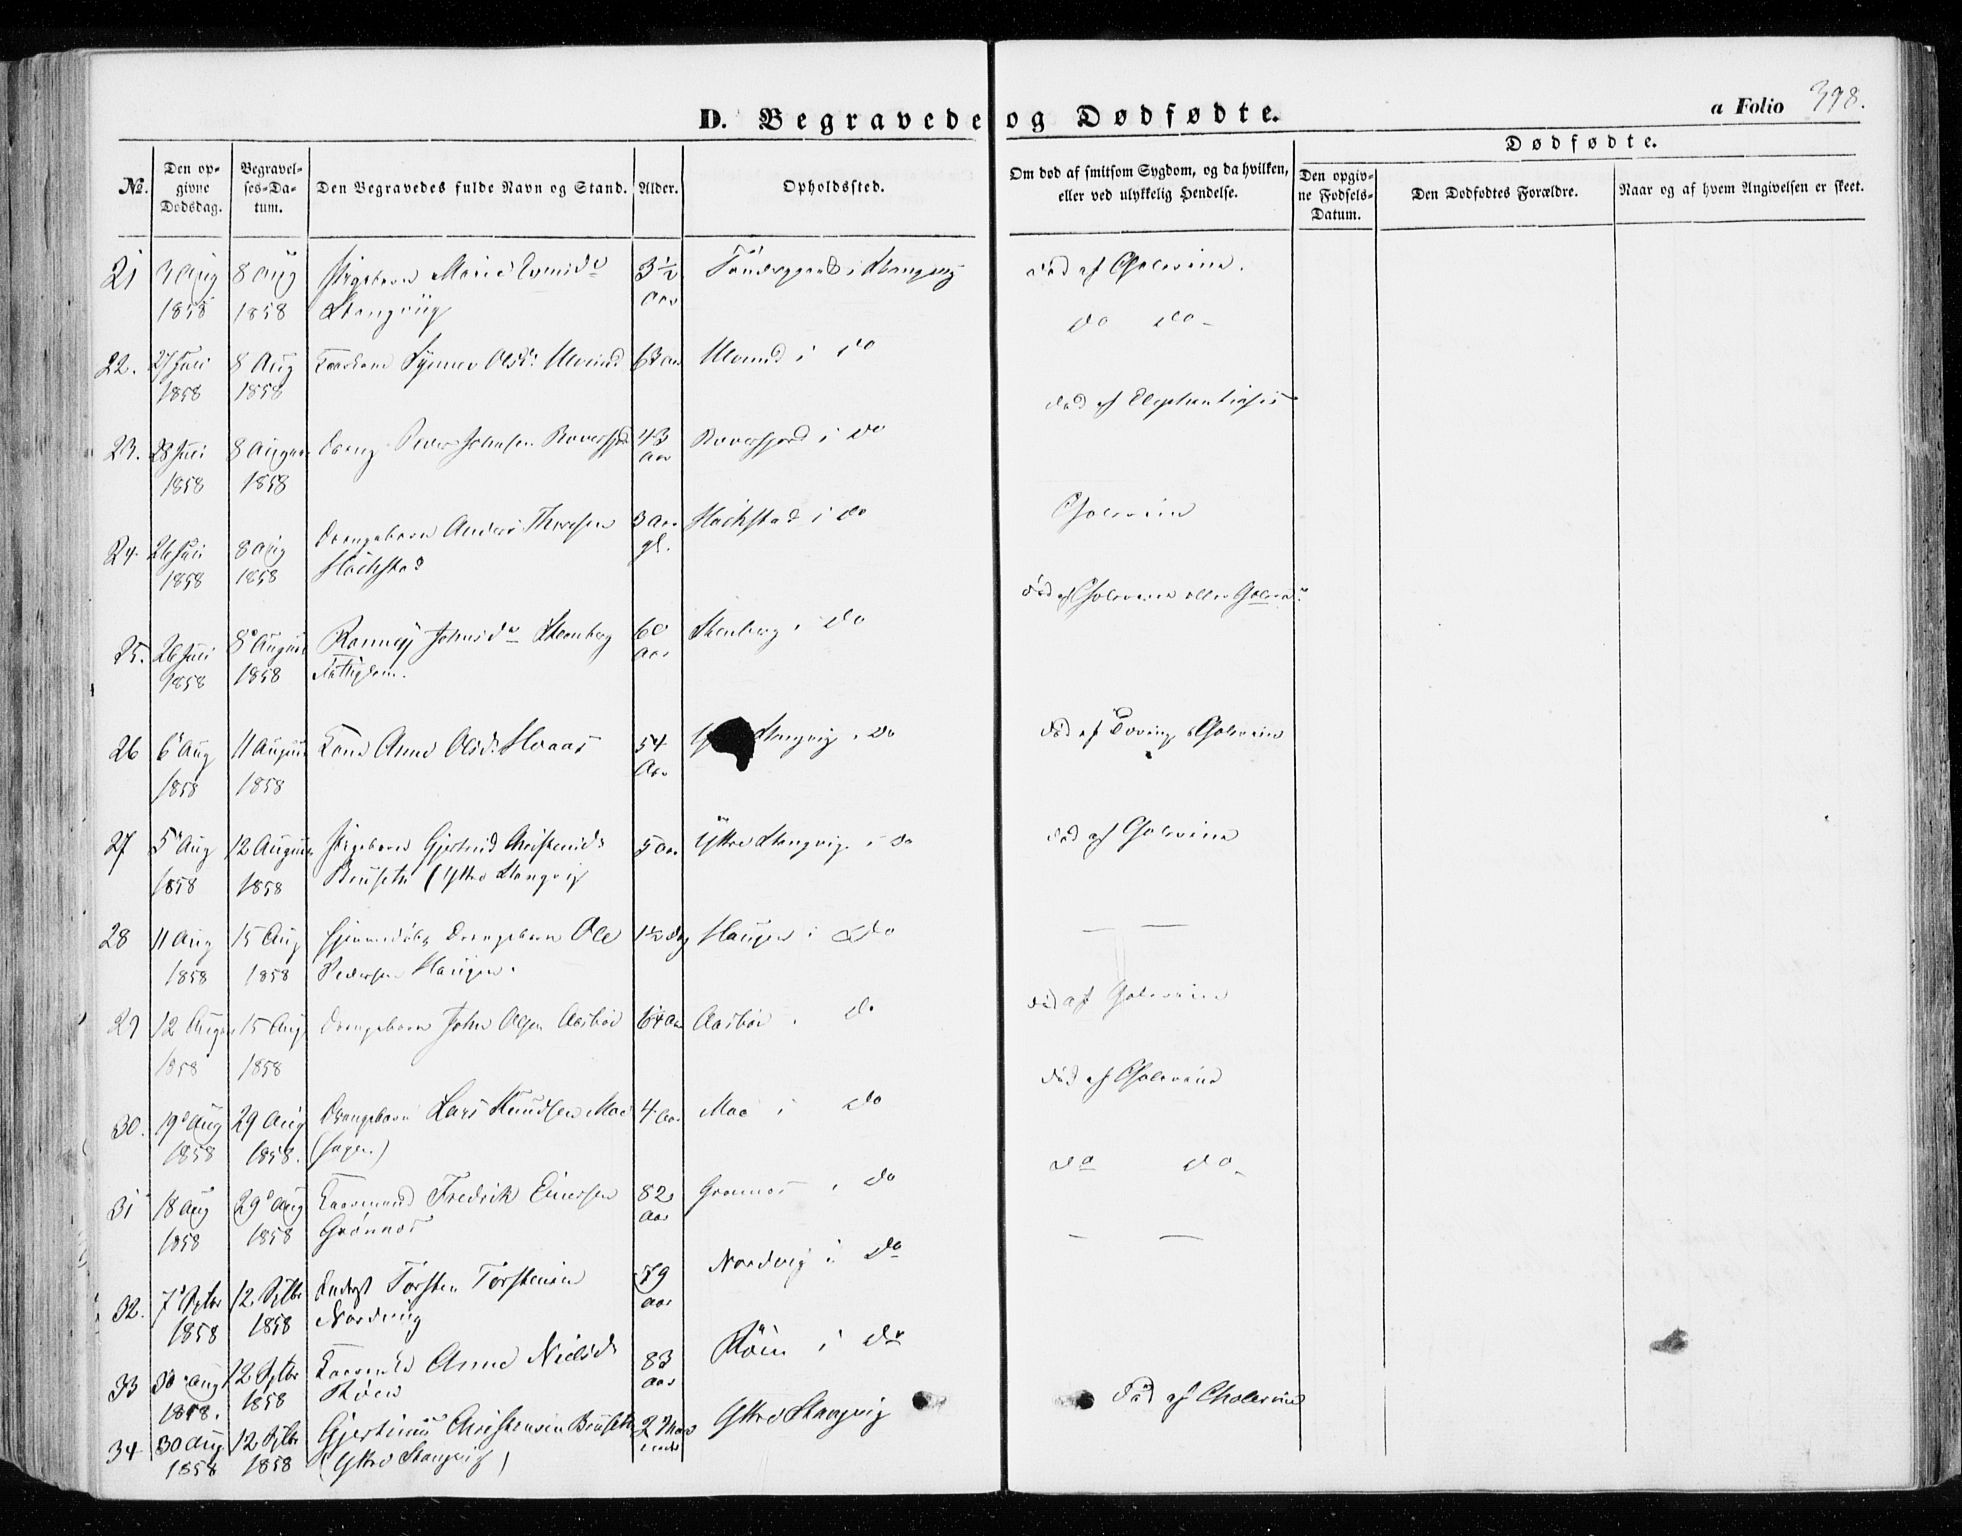 D. Begravede og Dødfødte.
a Folio 398.
No.
Den opgivne Dødsdag.
Begravelses-Datum.
Den Begravedes fulde Navn og Stand.
Alder.
Opholdssted.
Om død af smitsom Sygdom, og da hvilken, eller ved ulykkelig Hendelse.
Dødfødte.
Den opgivne Fødsels-Datum.
Den Dødfødtes Forældre.
Naar og af hvem Angivelsen er skeet.
21 3 Aug 8 Aug Pigebarn Marie 3½ i Stangvig død af Cholerine.
1858 1858 Stangvig Aar
22. 27 Juli 8 Aug Olsd. Ulvund 63 Aar Ulvund i do do do
1858 1858
23. 28 Juli 8 August Dreng Peder Johnsen 43 i do død af Elephantiasis
1858 1858 Aar
24. 26 Juli 8 Aug Drengebarn Anders 3 Aar i do Cholerine
1858 1858 gl.
25. 26 Juli 8 August Johnsd. Stenberg 60 Stenberg i do død af Cholerine eller Cholera
1858 1858 Fattiglem. Aar
26 6 Aug 11 August Kone Anne Olsd. 54 Stangvig i do død af Cholerine
1858 1858 Aar
27 5 Aug 12 August Pigebarn Gjertrud Christensd. 5 Aar Yttre Stangvig i do død af Cholerine
1858 1858 Bruset (Yttre Stangvig
28 11 Aug 15 Aug Hjemmedøbt Drengebarn Ole 1½ Dag Haugen i do — —
1858 1858 Pedersen Haugen.
29 12 August 15 Aug Drengebarn John Olsen Aasbøe Aar Aasbøe i do død af Cholerine
1858 1858
30. 19 Aug 29 Aug Drengebarn Lars Knudsen Moe 4 Aar Moe i do død af Cholerine
1858 1858.
31 18 Aug 29 Aug Kaarmand Fredrik Einersen 82 i do do do
1858 1858 Grønnes Aar
32. 7 Sptbr 12 Sptbr Torsten Torstensen 79 Nordvig i do — —
1858 1858 Nordvig Aar
33 30 Aug 12 Sptbr Anne Nielsd. 83 Røen i do
1858. 1858 Røen Aar
34 30 Aug 12 Sptbr Gjertinus Christensen Bruset 2 Yttre Stangvig død af Cholerine
1858 1858 (Yttre Stangvig)